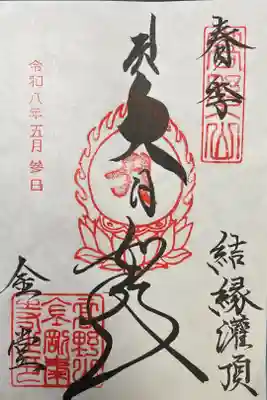 高野山
春季
結縁灌頂
大日如来
令和八年五月參日
金堂
高野山
金剛峯